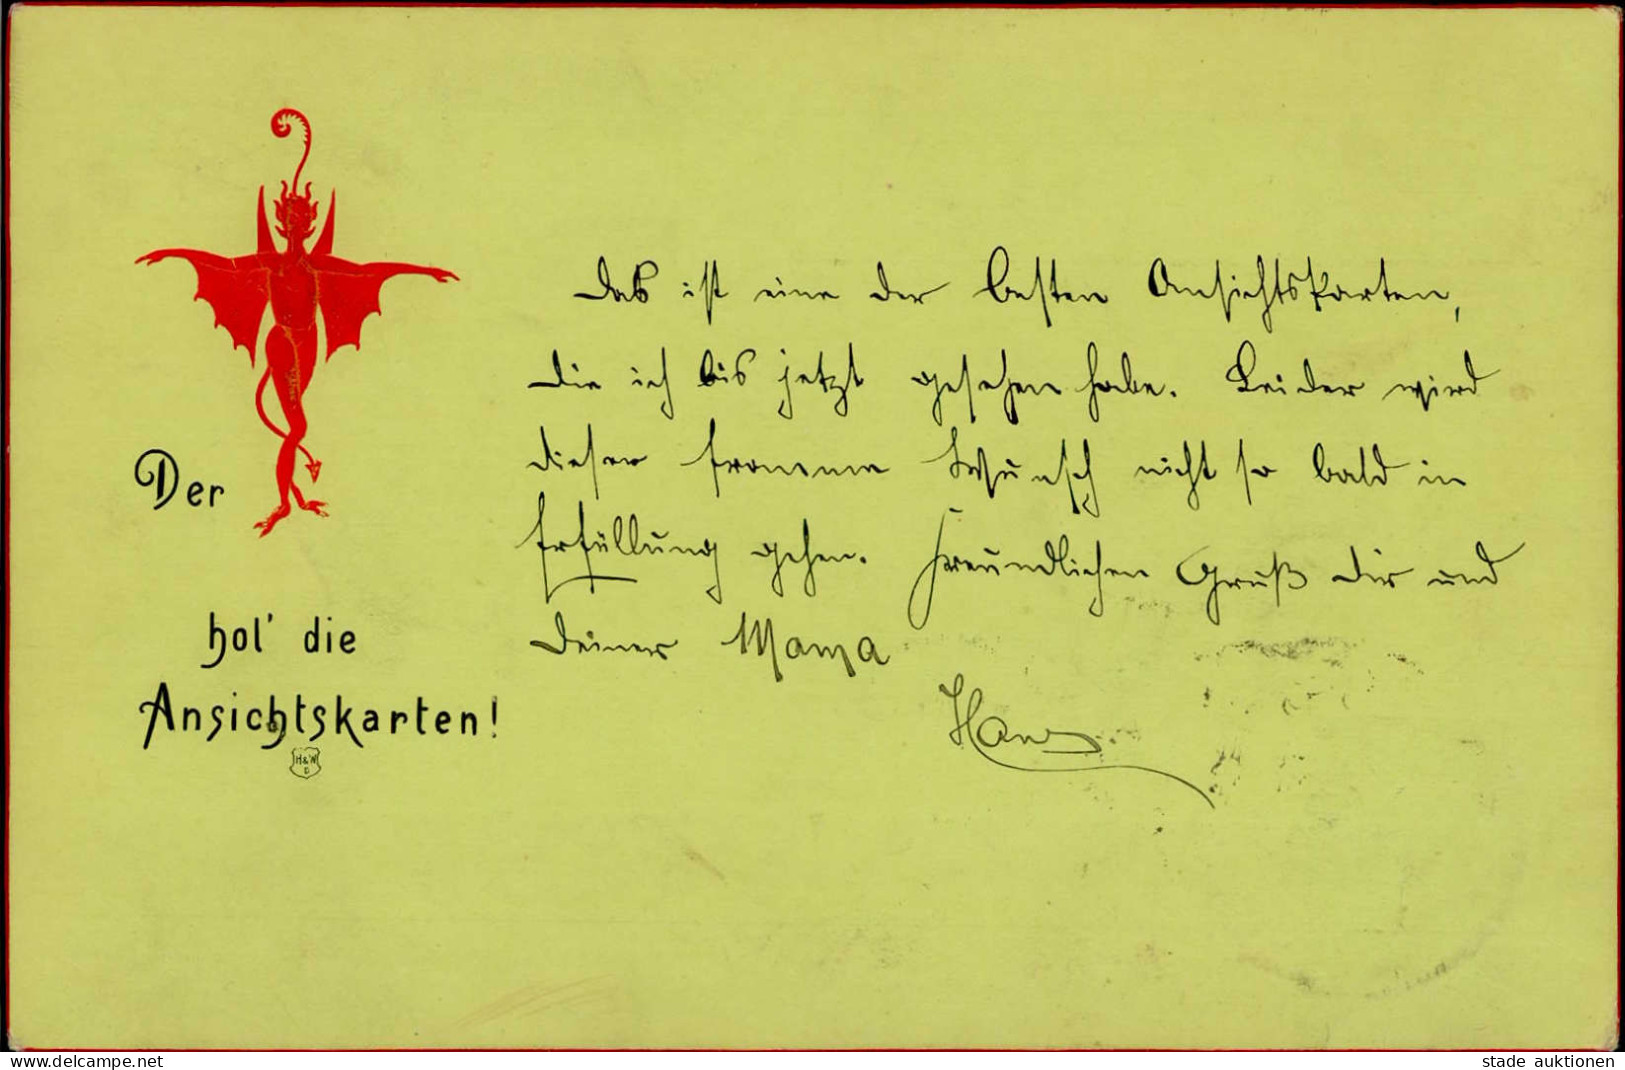 Der
hol' die
Ansichtskarten!
H&W
Das ist eine der besten Ansichtskarten,
die ich bis jetzt gesehen habe. Leider wird
dieser fromme Wunsch nicht so bald in
Erfüllung gehen. Freundlichen Gruß Dir und
Deiner Mama
Hans
www.delcampe.net
stade auktionen